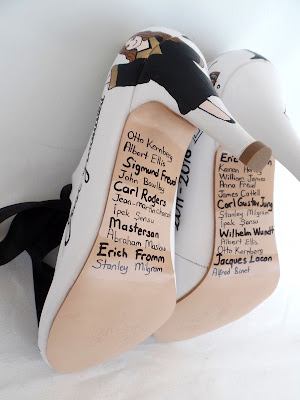 Otto Kernberg
Albert Ellis
Sigmund Freud
John Bowlby
Carl Rogers
Jean-martin Charcot
ipek Sensu
Masterson
Abraham Maslow
Erich Fromm
Stanley Milgram
2011-2016
Erich
Karen
William James
Anna Freud
James Cattell
Carl Gustav Jung
Stanley Milgram
ipek Sensu
Wilhelm Wundt
Albert Ellis
Otto Kernberg
Jacques Lacan
Alfred Binet